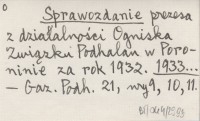 Sprawozdanie prezesa
z działalności Ogniska
Związku Podhalan w Poro-
ninie za rok 1932. 1933...
– Gaz. Podh. 21, wy9, 10, 11.